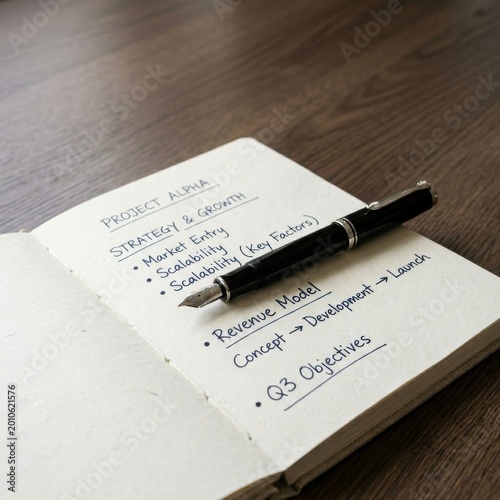 PROJECT ALPHA
STRATEGY & GROWTH
• Market Entry
• Scalability
• Scalability (Key Factors)
• Revenue Model
Concept → Development → Launch
• Q3 Objectives
Adobe Stock | #2010621576